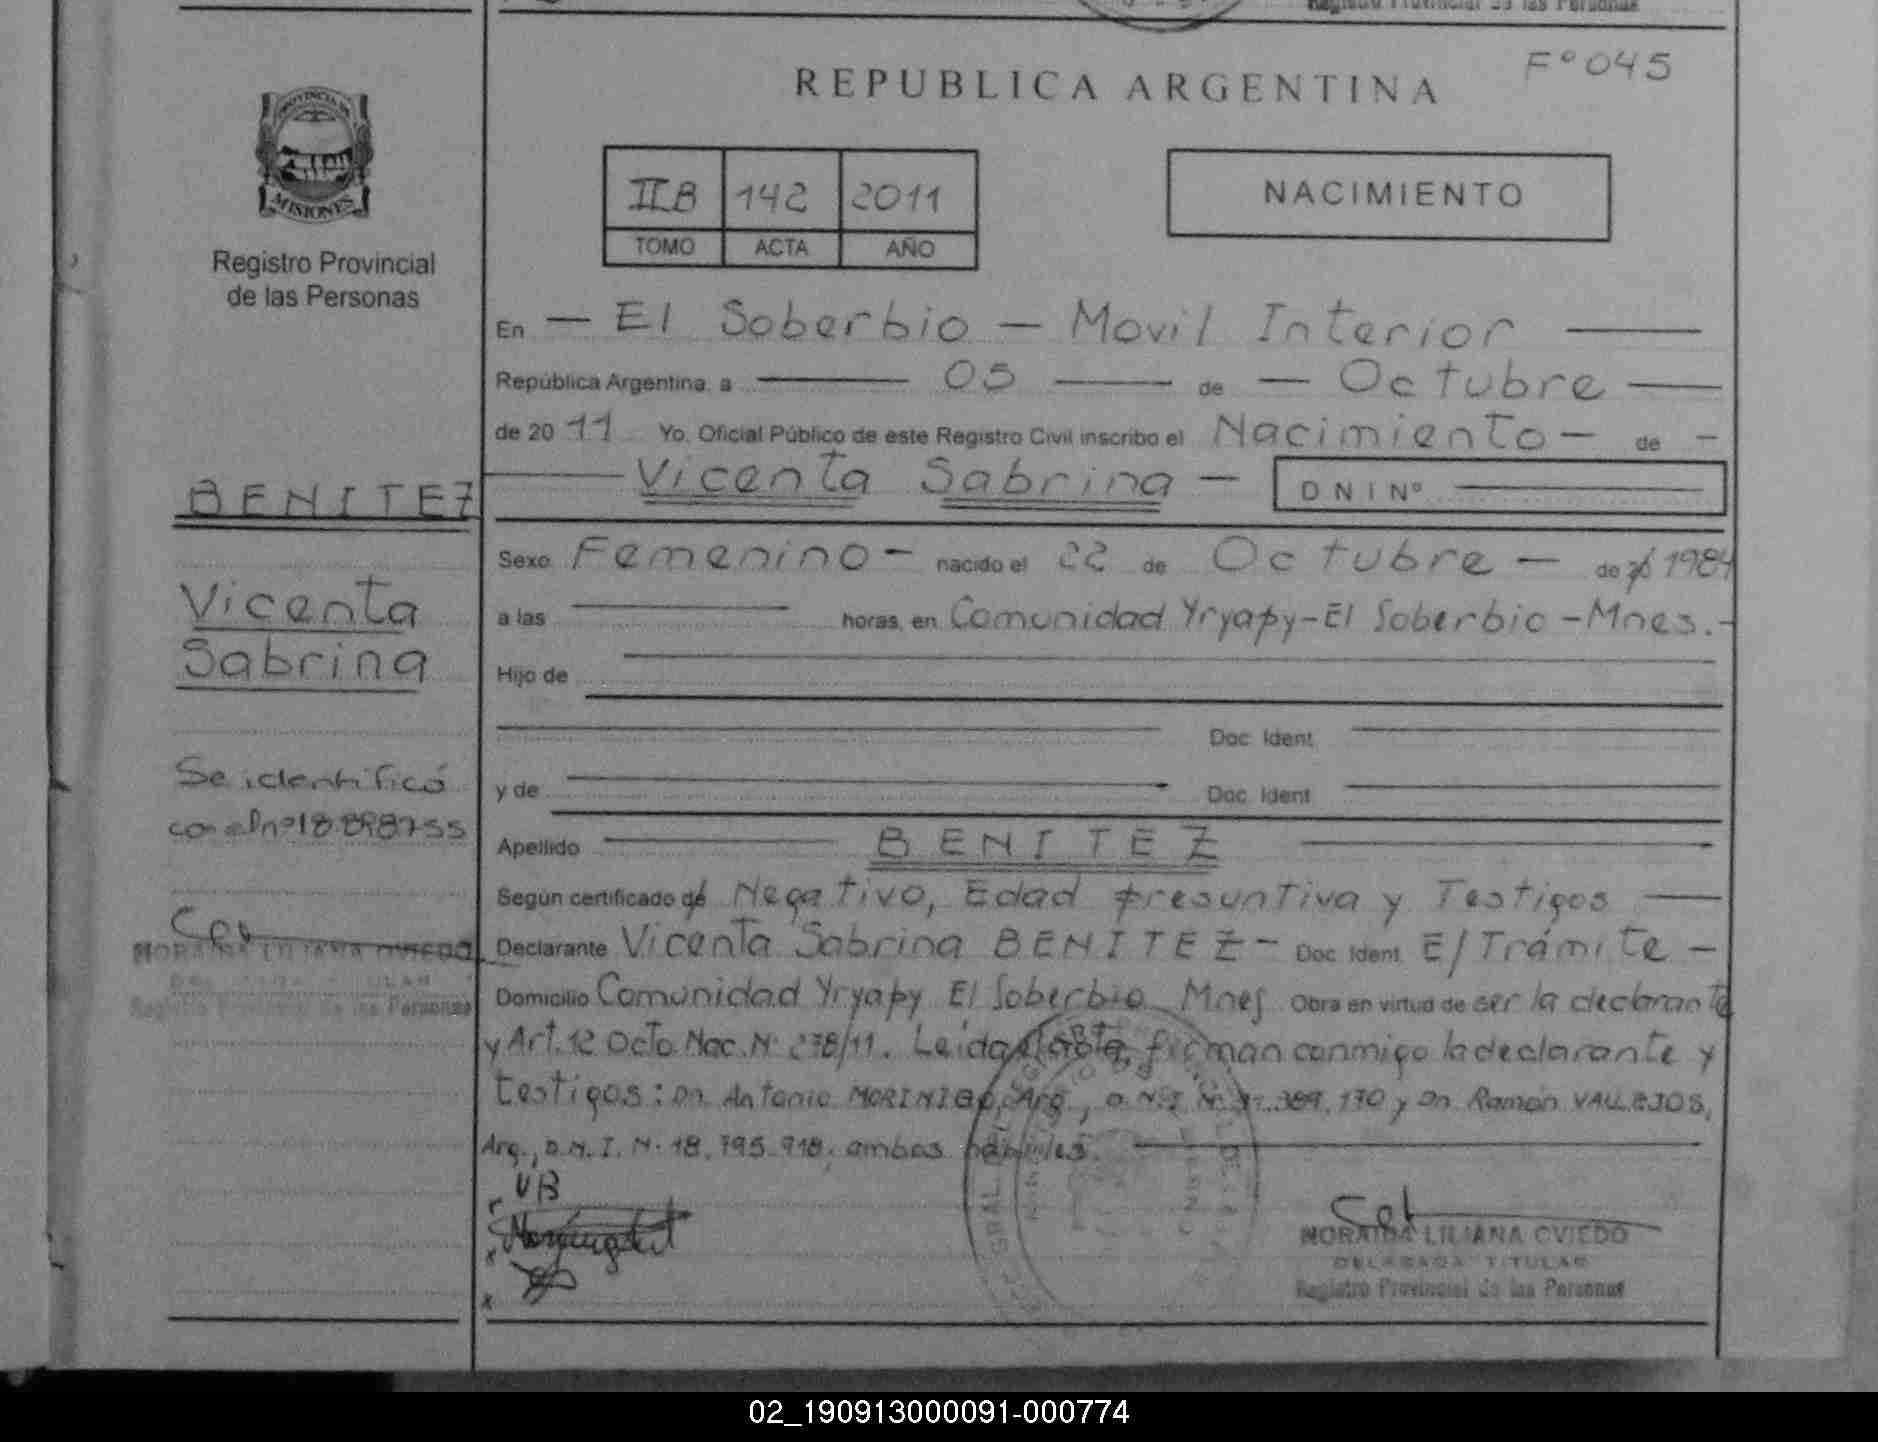 Registro Provincial de las Personas
F° 045
REPUBLICA ARGENTINA
PROVINCIA DE
MISIONES
Registro Provincial
de las Personas
IIB 142 2011
TOMO ACTA AÑO
NACIMIENTO
En — El Soberbio — Movil Interior —
República Argentina, a — 05 — de — Octubre —
de 2011 Yo, Oficial Público de este Registro Civil inscribo el Nacimiento — de —
— Vicenta Sabrina — D N I Nº —
BENITEZ
Vicenta
Sabrina
Se identificó
con
MORAIDA LILIANA OVIEDO
Registro Provincial de las Personas
Sexo Femenino — nacido el 22 de Octubre — de 1984
a las — horas, en Comunidad Yryapy - El Soberbio - Mnes. -
Hijo de —
— Doc. Ident. —
y de — Doc. Ident. —
Apellido — BENITEZ —
Según certificado de Negativo, Edad presuntiva y Testigos —
Declarante Vicenta Sabrina BENITEZ — Doc. Ident. E/Trámite —
Domicilio Comunidad Yryapy El Soberbio Mnes Obra en virtud de ser la declarante
y Art. 12 Dcto. Nac. N° 278/11. Leída el acta, firman conmigo la declarante y
testigos: Dn. Antonio MORINIGO, Arg., D.N.I. N° 389.170 y Dn. Ramón VALLEJOS,
Arg., D.N.I. N° 18.795.918, ambos hábiles. —
VB
MORAIDA LILIANA OVIEDO
DELEGADA TITULAR
Registro Provincial de las Personas
02_190913000091-000774